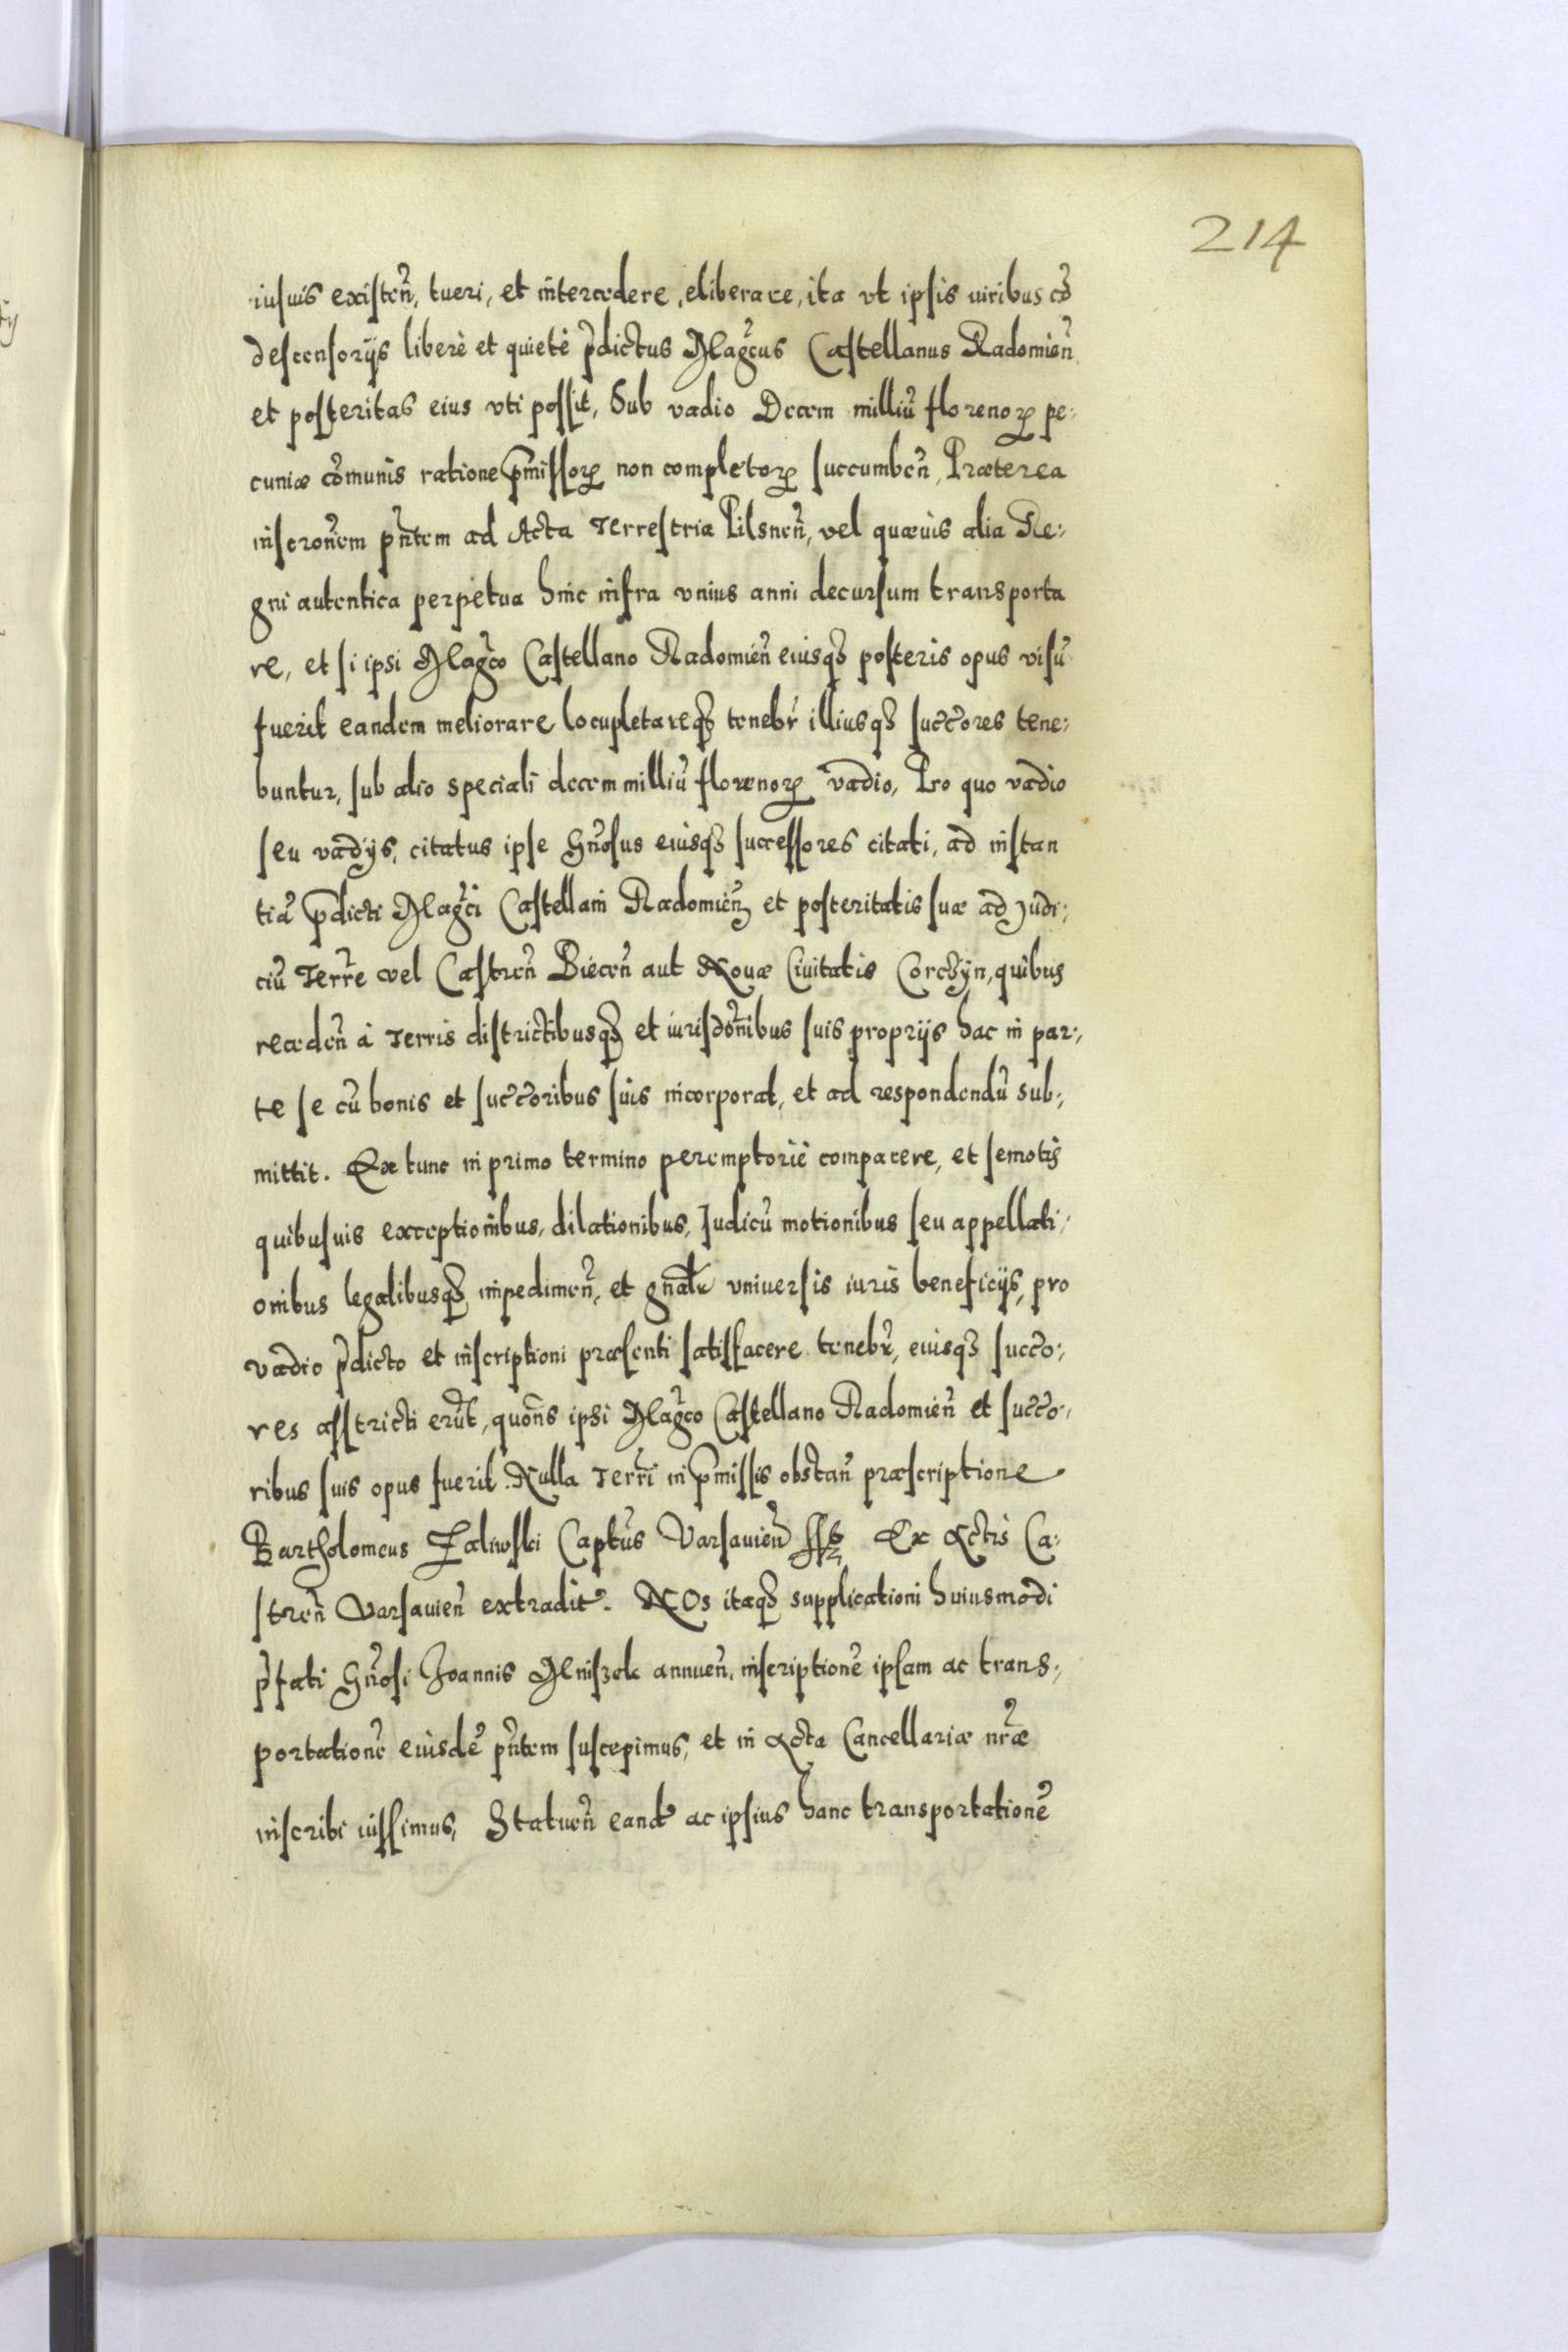 214
iusuis existen̄, tueri, et intercedere, eliberare, ita vt ipsis iuribus cō
descensorijs liberè et quietè p̄dictus Magc̄us Castellanus Radomien̄
et posteritas eius vti possit, Sub vadio Decem milliū florenoꝝ pe:
cuniæ cōmunis ratione p̄missoꝝ non completoꝝ succumben̄, Præterea
inscronēm pn̄tem ad Acta Terrestria Pilsnen̄, vel quæuis alia Re:
gni autentica perpetua hinc infra vnius anni decursum transporta
re, et si ipsi Magc̄o Castellano Radomien̄ eiusqȝ posteris opus visū
fuerit eandem meliorare locupletareqȝ tenebr̄ illiusqȝ succōres tene:
buntur, sub alio speciali decem milliū florenoꝝ vadio, Pro quo vadio
seu vadijs, citatus ipse Gn̄osus eiusqȝ successores citati, ad instan
tiā p̄dicti Magc̄i Castellani Radomien̄ et posteritatis suæ ad Judi:
ciū Terr̄e vel Castren̄ Biecen̄ aut Nouæ Ciuitatis Corchÿn, quibus
receden̄ à Terris districtibusqȝ et iurisdōnibus suis proprijs hac in par:
te se cū bonis et succōribus suis incorporat, et ad respondendū sub:
mittit. Ex tunc in primo termino peremptoriè comparere, et semotis
quibusuis exceptionibus, dilationibus, Judicū motionibus seu appellati:
onibus legalibusqȝ impedimen̄, et gn̄alr̄ vniuersis iuris beneficijs, pro
vadio p̄dicto et inscriptioni præsenti satisfacere tenebr̄, eiusqȝ succō:
res asstricti erūt, quon̄s ipsi Magc̄o Castellano Radomien̄ et succō:
ribus suis opus fuerit. Nulla Terr̄i in p̄missis obstan̄ præscriptione
Bartholomeus Zaliwski Captūs Varsauien̄ ssz Ex Actis Ca:
stren̄ Varsauien̄ extradit̄. NOs itaqȝ supplicationi huiusmodi
p̄fati Gn̄osi Joannis Mniszek annuen̄, inscriptionē ipsam ac trans:
portationē eiusdē pn̄tem suscepimus, et in Acta Cancellariæ nr̄æ
inscribi iussimus, Statuen̄ eand̄ ac ipsius hanc transportationē